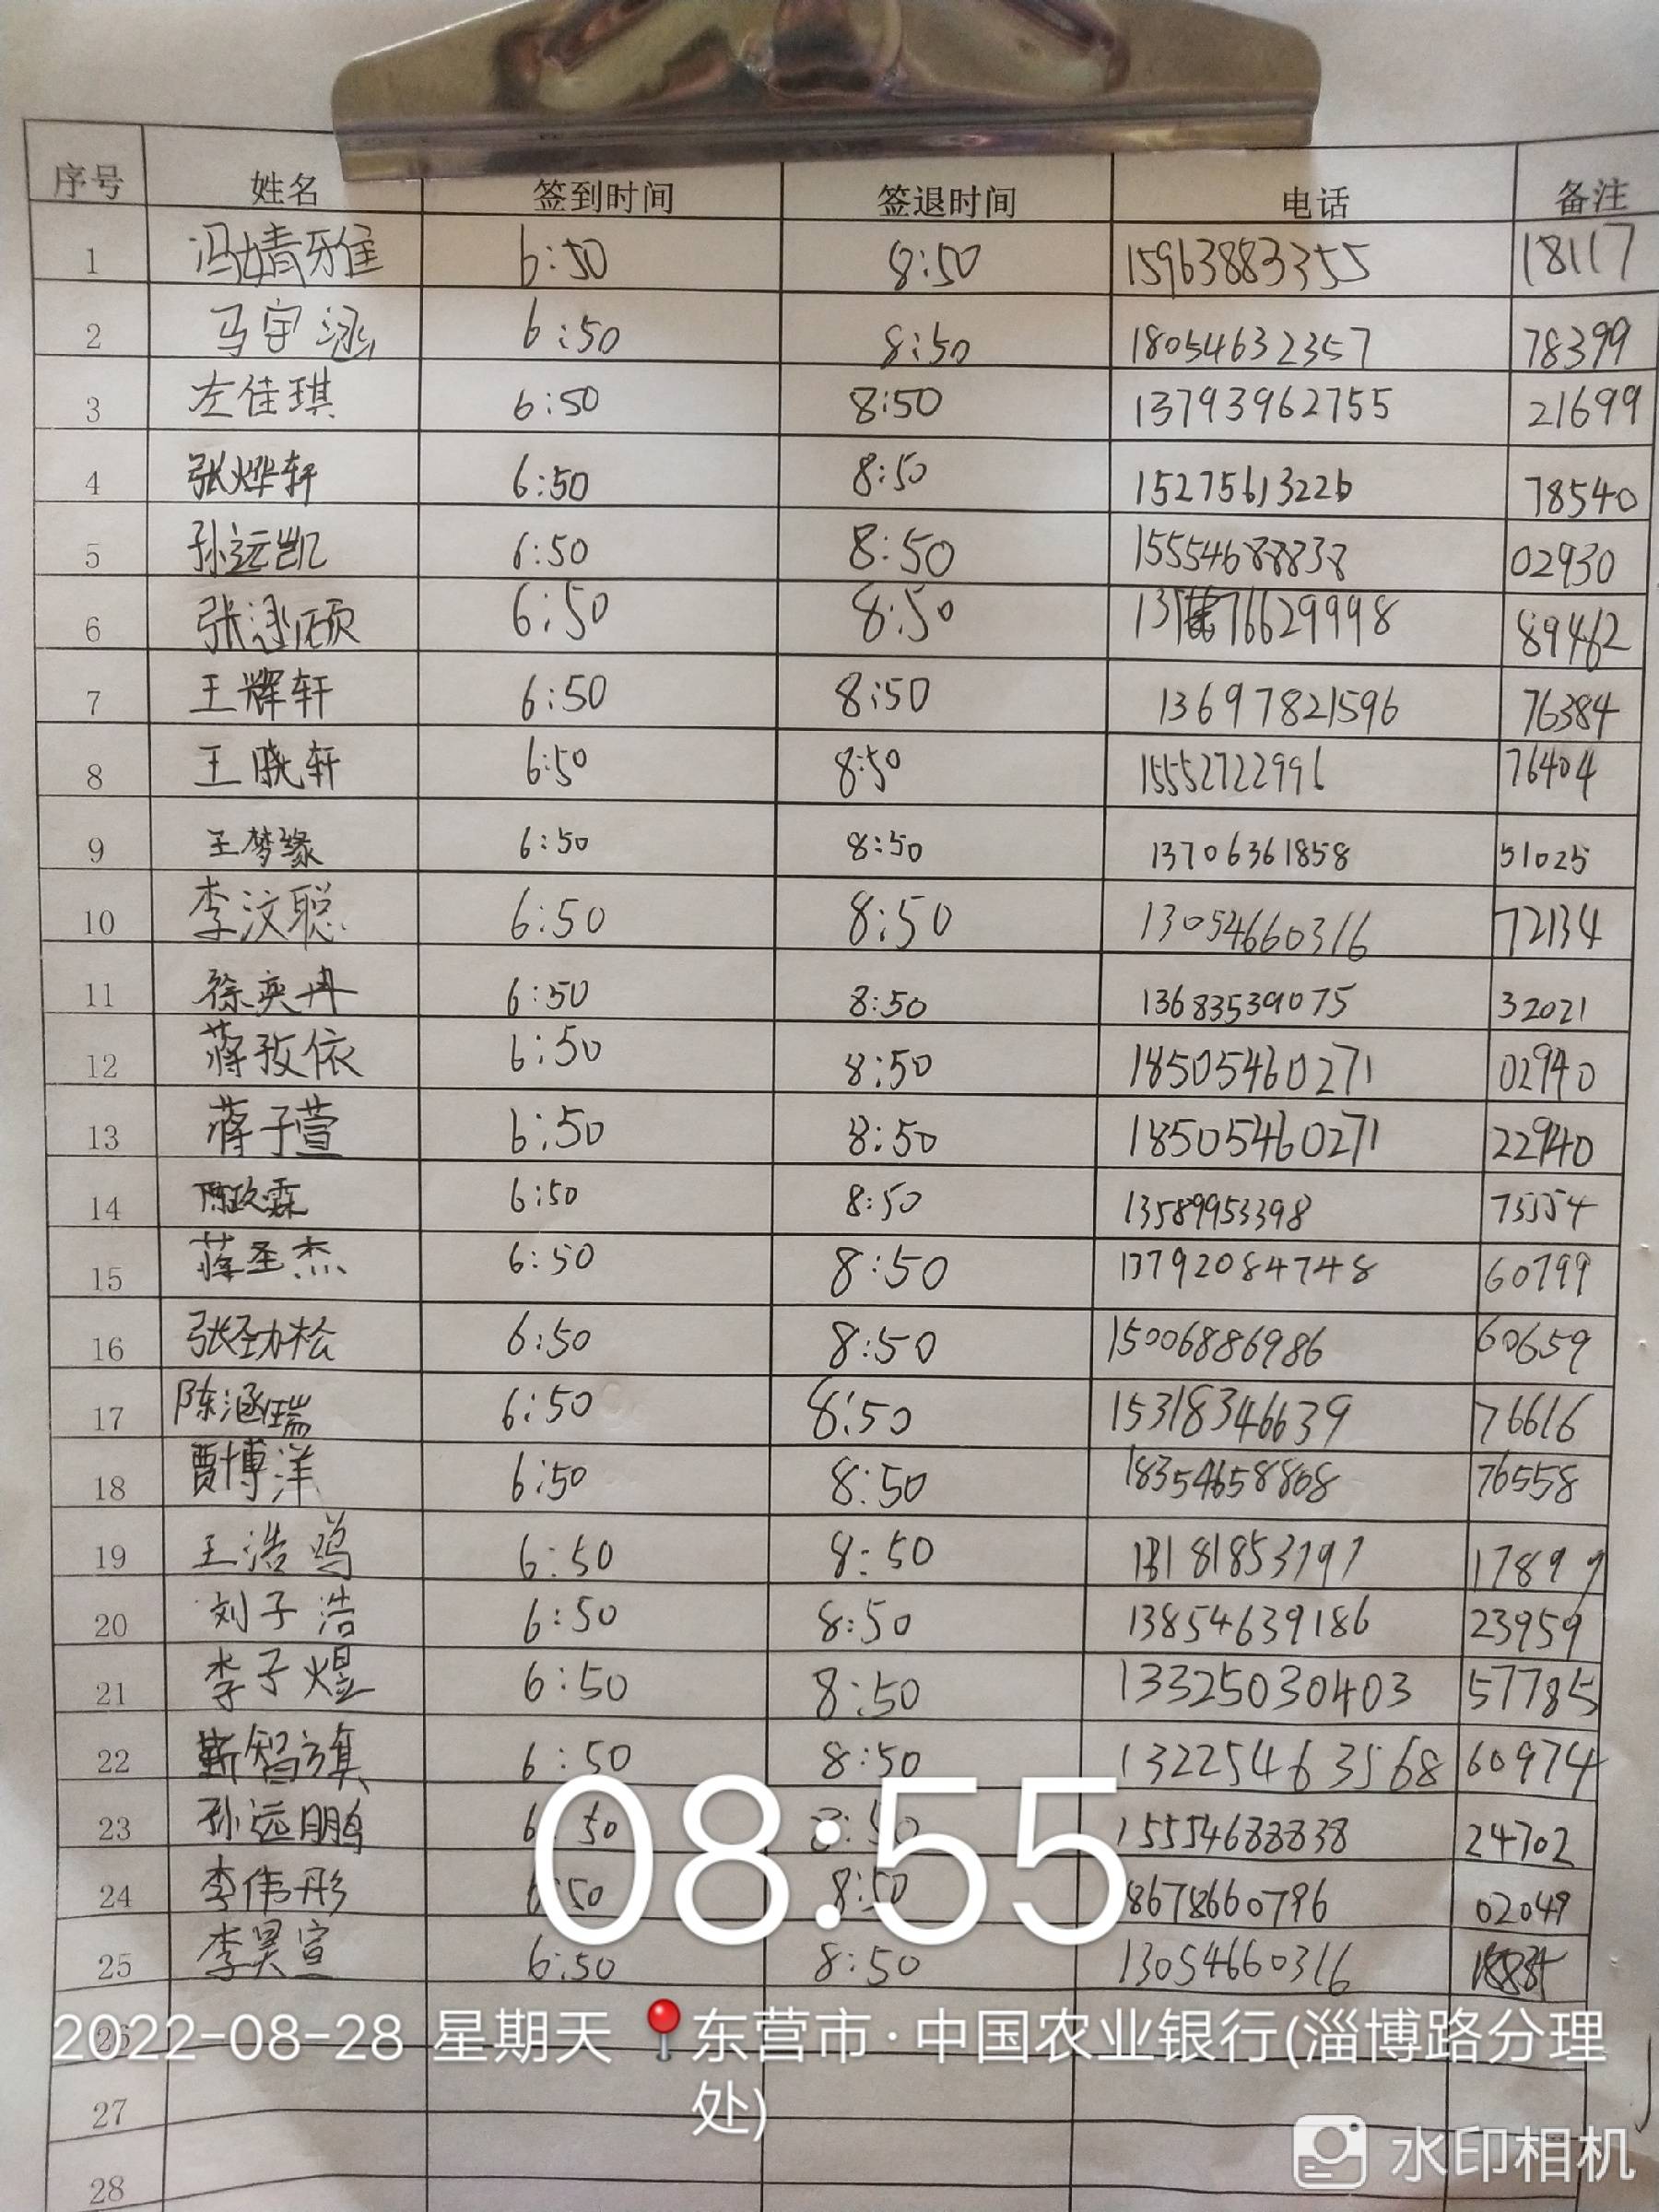 序号 姓名 签到时间 签退时间 电话 备注
1 冯婧雅 6:50 8:50 15963883355 18117
2 马宇涵 6:50 8:50 18054632357 78399
3 左佳琪 6:50 8:50 13793962755 21699
4 张烨轩 6:50 8:50 15275613226 78540
5 孙远凯 6:50 8:50 15554688838 02930
6 张 硕 6:50 8:50 89462
7 王辉轩 6:50 8:50 13697821596 76384
8 王晓轩 6:50 8:50 15552722996 76404
9 王梦缘 6:50 8:50 13706361858 51025
10 李汶聪 6:50 8:50 13054660316 72134
11 徐奕冉 6:50 8:50 13683539075 32021
12 蒋孜依 6:50 8:50 18505460271 02940
13 蒋子萱 6:50 8:50 18505460271 22940
14 陈玖霖 6:50 8:50 13589953398 75554
15 蒋圣杰 6:50 8:50 13792084748 60799
16 张劲松 6:50 8:50 15006886986 60659
17 陈涵瑞 6:50 8:50 15318346639 76616
18 贾博洋 6:50 8:50 18354658808 76558
19 王浩鸣 6:50 8:50 13181853797 17899
20 刘子浩 6:50 8:50 13854639186 23959
21 李子煜 6:50 8:50 13325030403 57785
22 靳智旗 6:50 8:50 13225463568 60974
23 孙远鹏 6:50 8:50 15554688838 24702
24 李伟彤 6:50 8:50 8678660796 02049
25 李昊宣 6:50 8:50 13054660316
08:55
26
2022-08-28 星期天 东营市·中国农业银行(淄博路分理
处)
27
28
水印相机